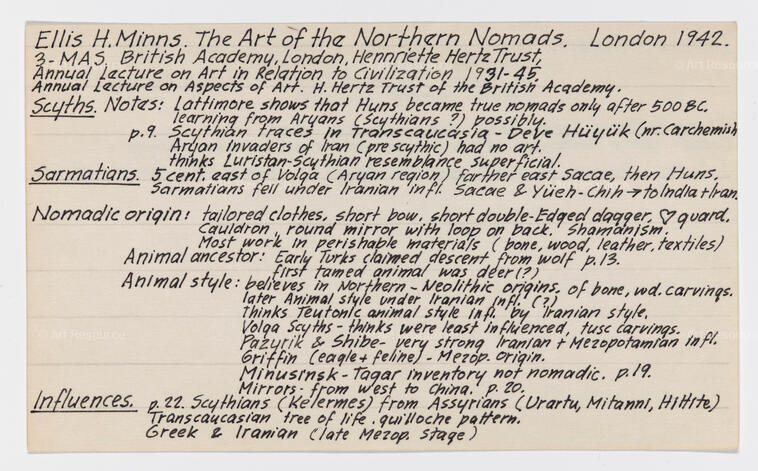 Ellis H. Minns. The Art of the Northern Nomads. London 1942.
3-MAS. British Academy, London, Hennriette Hertz Trust,
Annual Lecture on Art in Relation to Civilization 1931-45.
Annual Lecture on Aspects of Art. H. Hertz Trust of the British Academy.
Scyths. Notes: Lattimore shows that Huns became true nomads only after 500 BC.
learning from Aryans (Scythians ?) possibly.
p.9. Scythian traces in Transcaucasia - Deve Hüyük (nr. Carchemish
Aryan invaders of Iran (prescythic) had no art.
thinks Luristan-Scythian resemblance superficial.
Sarmatians. 5 cent. east of Volga (Aryan region) farther east Sacae, then Huns.
Sarmatians fell under Iranian infl. Sacae & Yüeh-Chih → to India + Iran.
Nomadic origin: tailored clothes, short bow, short double-Edged dagger, ♡ guard.
Cauldron, round mirror with loop on back. Shamanism.
Most work in perishable materials (bone, wood, leather, textiles)
Animal ancestor: Early Turks claimed descent from wolf p.13.
first tamed animal was deer (?)
Animal style: believes in Northern-Neolithic origins. of bone, wd. carvings.
later Animal style under Iranian infl. (?)
Thinks Teutonic animal style infl. by Iranian style.
Volga Scyths - thinks were least influenced, tusc carvings.
Pazyrik & Shibe - very strong Iranian + Mezopotamian infl.
Griffin (eagle + feline) - Mezop. origin.
Minusinsk - Tagar inventory not nomadic. p.19.
Mirrors - from west to China. p.20.
Influences. p.22. Scythians (Kelermes) from Assyrians (Urartu, Mitanni, Hittite)
Transcaucasian tree of life. quilloche pattern.
Greek & Iranian (late Mezop. stage)
© Art Resource